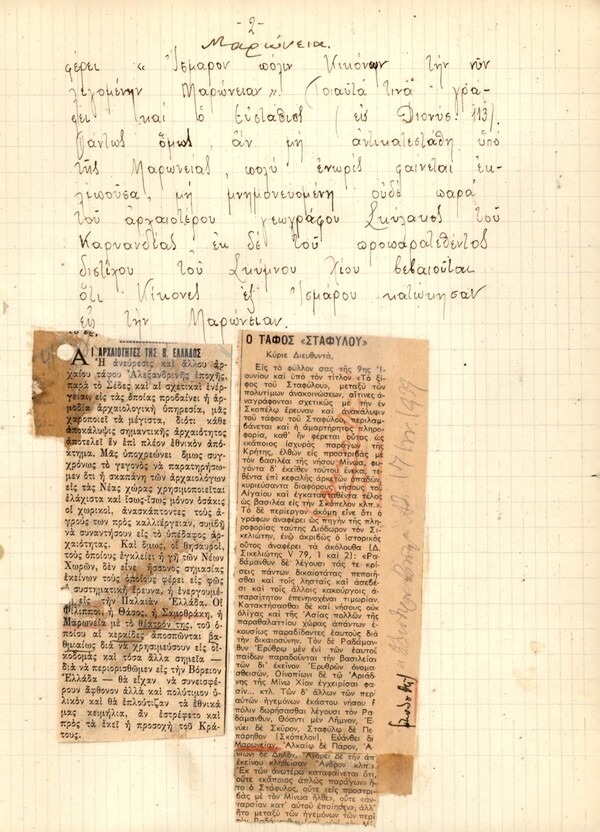 -2-
Μαρώνεια.
φέρει « Ἴσμαρον πόλιν Κικόνων τὴν νῦν
λεγομένην Μαρώνειαν». Τοιαῦτά τινα γρά-
φει καὶ ὁ Εὐστάθιος (εἰς Διονύσ. 113).
Πάντως ὅμως, ἂν μὴ ἀντικατεστάθη ὑπὸ
τῆς Μαρωνείας, πολὺ ἐνωρὶς φαίνεται ἐκ-
λιποῦσα, μὴ μνημονευομένη οὐδὲ παρὰ
τοῦ ἀρχαιοτέρου γεωγράφου Σκύλακος τοῦ
Καρυανδέως ἐκ δὲ τοῦ προπαρατεθέντος
διστίχου τοῦ Σκύμνου Χίου βεβαιοῦται
ὅτι Κίκονες ἐξ Ἰσμάρου κατῴκησαν
εἰς τὴν Μαρώνειαν.
ΑΙ ΑΡΧΑΙΟΤΗΤΕΣ ΤΗΣ Β. ΕΛΛΑΔΟΣ
Ἡ ἀνεύρεσις καὶ ἄλλου ἀρ-
χαίου τάφου Ἀλεξανδρινῆς ἐποχῆς,
παρὰ τὸ Σέδες καὶ αἱ σχετικαὶ ἐνέρ-
γειαι, εἰς τὰς ὁποίας προβαίνει ἡ ἁρ-
μοδία ἀρχαιολογικὴ ὑπηρεσία, μᾶς
χαροποιεῖ τὰ μέγιστα, διότι κάθε
ἀποκάλυψις σημαντικῆς ἀρχαιότητος
ἀποτελεῖ ἓν ἐπὶ πλέον ἐθνικὸν ἀπό-
κτημα. Μᾶς ὑποχρεώνει ὅμως συγ-
χρόνως τὸ γεγονὸς νὰ παρατηρήσω-
μεν ὅτι ἡ σκαπάνη τῶν ἀρχαιολόγων
εἰς τὰς Νέας χώρας χρησιμοποιεῖται
ἐλάχιστα καὶ ἴσως-ἴσως μόνον ὁσάκις
οἱ χωρικοί, ἀνασκάπτοντες τοὺς ἀ-
γρούς των πρὸς καλλιέργειαν, συμβῇ
νὰ συναντήσουν εἰς τὸ ὑπέδαφος ἀρ-
χαιότητας. Καὶ ὅμως, οἱ θησαυροί,
τοὺς ὁποίους ἐγκλείει ἡ γῆ τῶν Νέων
Χωρῶν, δὲν εἶνε ἥσσονος σημασίας
ἐκείνων τοὺς ὁποίους φέρει εἰς φῶς
συστηματικὴ ἔρευνα, ἡ ἐνεργουμέ-
νη εἰς τὴν Παλαιὰν Ἑλλάδα. Οἱ
Φίλιπποι, ἡ Θάσος, ἡ Σαμοθράκη, ἡ
Μαρωνεία μὲ τὸ θέατρόν της, τοῦ ὁ-
ποίου αἱ κερκίδες ἀποσπῶνται βα-
θμιαίως διὰ νὰ χρησιμεύσουν εἰς οἰ-
κοδομὰς καὶ τόσα ἄλλα σημεῖα —
διὰ νὰ περιορισθῶμεν εἰς τὴν Βόρειον
Ἑλλάδα — θὰ εἶχαν νὰ συνεισφέ-
ρουν ἄφθονον ἀλλὰ καὶ πολύτιμον ὑ-
λικὸν καὶ θὰ ἐπλούτιζαν τὰ ἐθνικά
μας κειμήλια, ἂν ἐστρέφετο καὶ
πρὸς τὰ ἐκεῖ ἡ προσοχὴ τοῦ Κρά-
τους.
Ο ΤΑΦΟΣ «ΣΤΑΦΥΛΟΥ»
Κύριε Διευθυντά,
Εἰς τὸ φύλλον σας τῆς 9ης Ἰ-
ουνίου καὶ ὑπὸ τὸν τίτλον «Τὸ ξί-
φος τοῦ Σταφύλου», μεταξὺ τῶν
πολυτίμων ἀνακοινώσεων, αἵτινες ἀ-
ναγράφονται σχετικῶς μὲ τὴν ἐν
Σκοπέλῳ ἔρευναν καὶ ἀνακάλυψιν
τοῦ τάφου τοῦ Σταφύλου, περιλαμ-
βάνεται καὶ ἡ ἁμαρτήρητος πληροφο-
ρία, καθ' ἣν φέρεται οὗτος ὡς
«κάποιος ἰσχυρὸς παράγων τῆς
Κρήτης, ἐλθὼν εἰς προστριβὰς μὲ
τὸν βασιλέα τῆς νήσου Μίνωα, φυ-
γόντα δ' ἐκεῖθεν τούτου ἕνεκα, τε-
θέντα ἐπὶ κεφαλῆς ἀρκετῶν ὀπαδῶν,
κυριεύσαντα διαφόρους νήσους τοῦ
Αἰγαίου καὶ ἐγκατασταθέντα τέλος
ὡς βασιλέα εἰς τὴν Σκόπελον κλπ.».
Τὸ δὲ περίεργον ἀκόμη εἶνε ὅτι ὁ
γράφων ἀναφέρει ὡς πηγὴν τῆς πλη-
ροφορίας ταύτης Διόδωρον τὸν Σι-
κελιώτην, ἐνῷ ἀκριβῶς ὁ ἱστορικὸς
οὗτος ἀναφέρει τὰ ἀκόλουθα (Δ.
Σικελιώτης V 79, 1 καὶ 2): «Ρα-
δάμανθυν δὲ λέγουσι τάς τε κρί-
σεις πάντων δικαιοτάτας πεποιῆ-
σθαι καὶ τοῖς λῃσταῖς καὶ ἀσεβέ-
σι καὶ τοῖς ἄλλοις κακούργοις ἀ-
παραίτητον ἐπενηνοχέναι τιμωρίαν.
Κατακτήσασθαι δὲ καὶ νήσους οὐκ
ὀλίγας καὶ τῆς Ἀσίας πολλὴν τῆς
παραθαλαττίου χώρας ἁπάντων ἑ-
κουσίως παραδιδόντων ἑαυτοὺς διὰ
τὴν δικαιοσύνην. Τὸν δὲ Ραδάμαν-
θυν Ἐρύθρῳ μὲν ἑνὶ τῶν ἑαυτοῦ
παίδων παραδοῦναι τὴν βασιλείαν
τῶν δι' ἐκεῖνον Ἐρυθρῶν ὀνομα-
σθεισῶν, Οἰνοπίωνι δὲ τῷ Ἀριάδ-
νης τῆς Μίνω Χίον ἐγχειρίσαι φα-
σίν... κτλ. Τῶν δ' ἄλλων τῶν περὶ
αὐτὸν ἡγεμόνων ἑκάστου νήσου ἢ
πόλιν δωρήσασθαι λέγουσι τὸν Ρα-
δάμανθυν, Θόαντι μὲν Λῆμνον, Ἐ-
νυεῖ δὲ Σκῦρον, Σταφύλῳ δὲ Πε-
πάρηθον [Σκόπελον], Εὐάνθει δὲ
Μαρώνειαν, Ἀλκαίῳ δὲ Πάρον, Ἀ-
νίωνι δὲ Δῆλον, Ἀνδρεῖ δὲ τὴν ἀπ'
ἐκείνου κληθεῖσαν Ἄνδρον κλπ.».
Ἐκ τῶν ἀνωτέρω καταφαίνεται ὅτι,
οὔτε «κάποιος ἁπλῶς παράγων» ἦ-
το ὁ Στάφυλος, οὔτε «εἰς προστρι-
βὰς μὲ τὸν Μίνωα ἦλθε», οὔτε «ἀν-
ταρσίαν κατ' αὐτοῦ ἐποίησεν», ἀλλ'
ἦτο μεταξὺ τῶν ἡγεμόνων τῶν περὶ